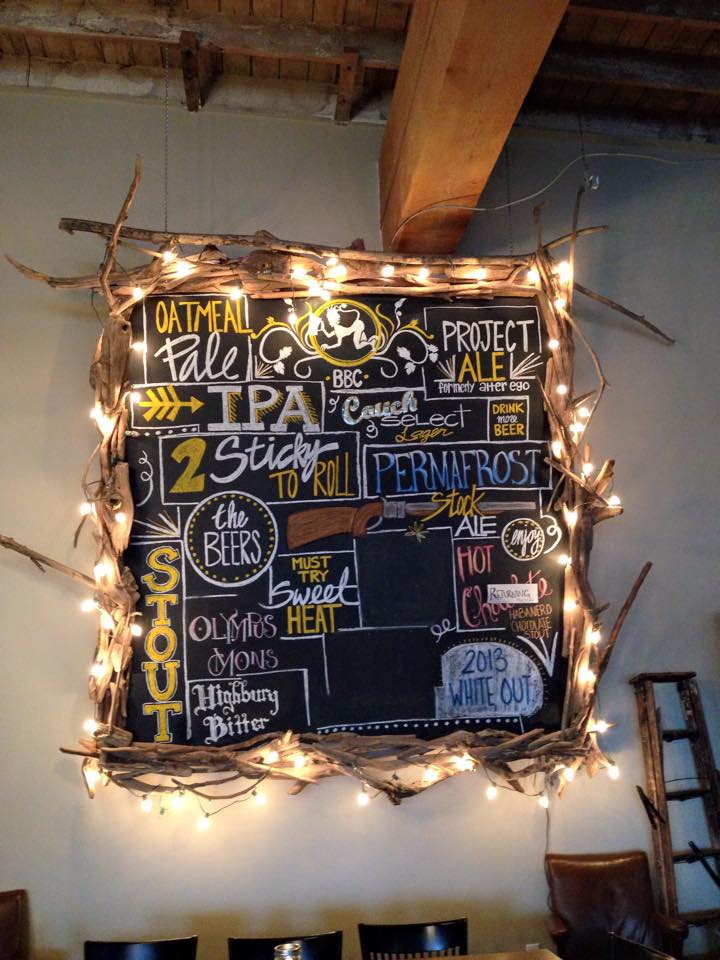 OATMEAL
Pale
BBC
PROJECT
ALE
formerly alter ego
IPA
Couch
Select
Lager
DRINK
more
BEER
2 Sticky
TO ROLL
PERMAFROST
Stock
ALE
the
BEERS
enjoy
MUST
TRY
Sweet
HEAT
HOT
Chocolate
RETURNING
HABANERO
CHOCOLATE
STOUT
STOUT
OLYMPUS
MONS
Highbury
Bitter
2013
WHITE OUT